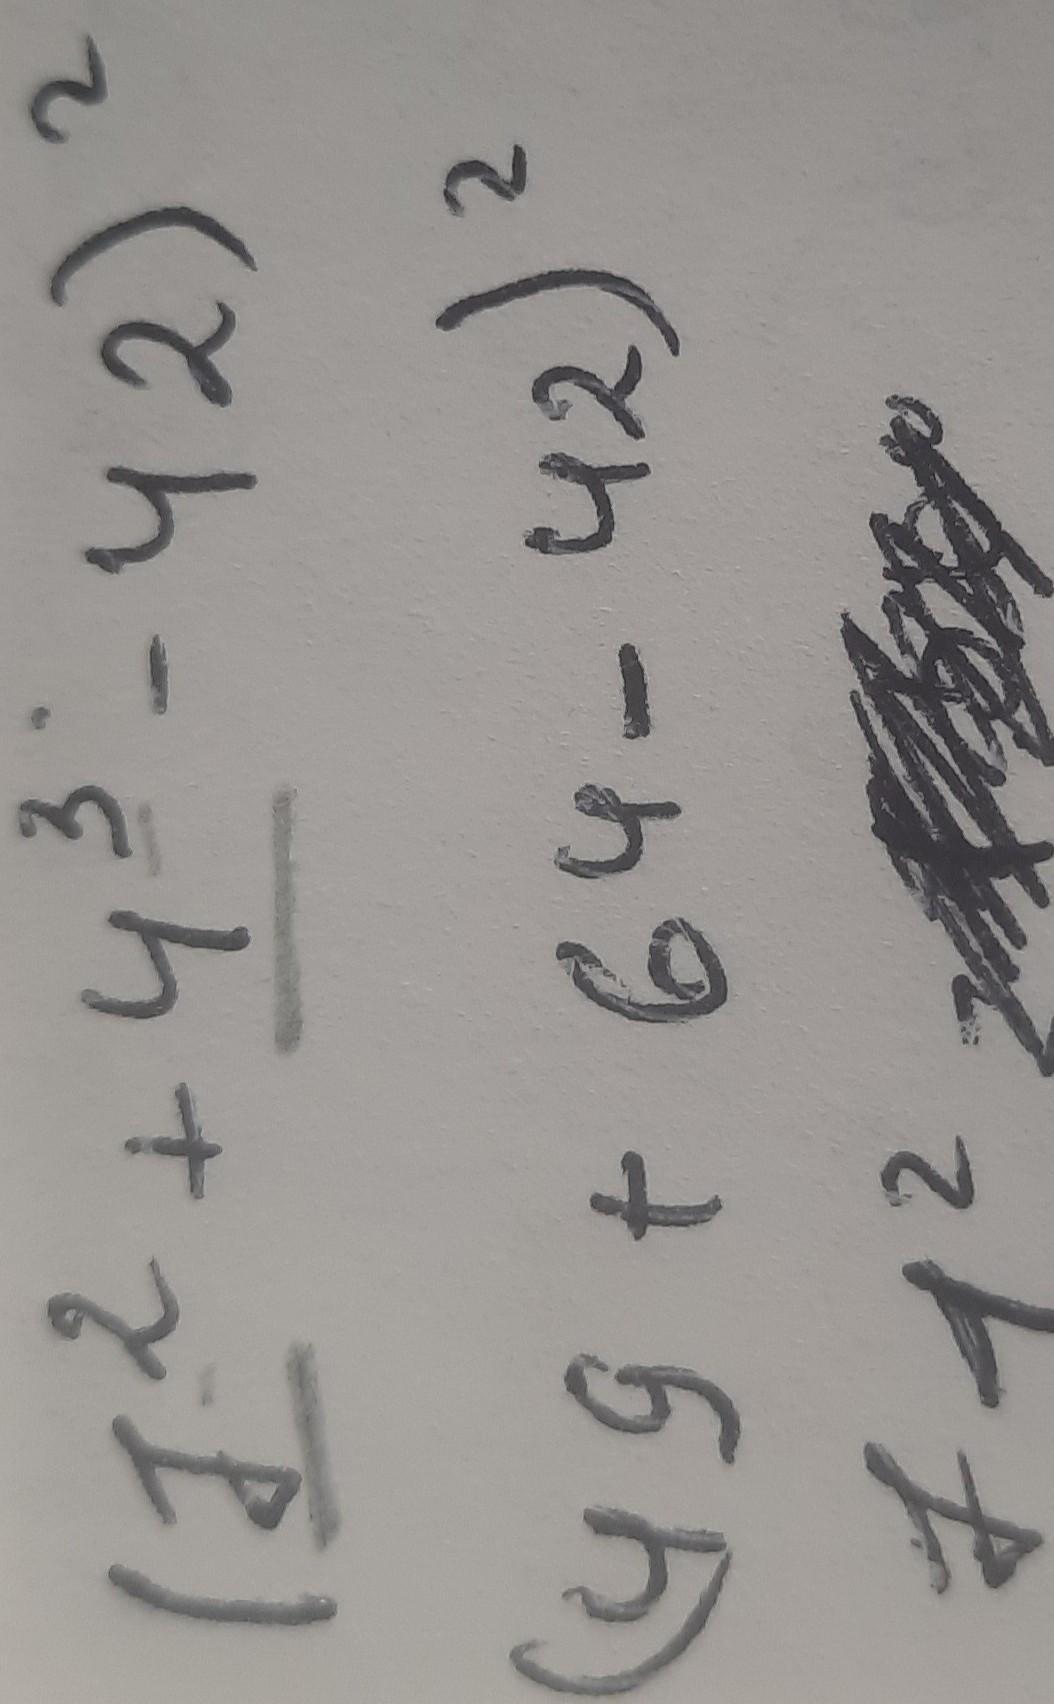 (7² + 4³ - 42)²
(49 + 64 - 42)²
71²